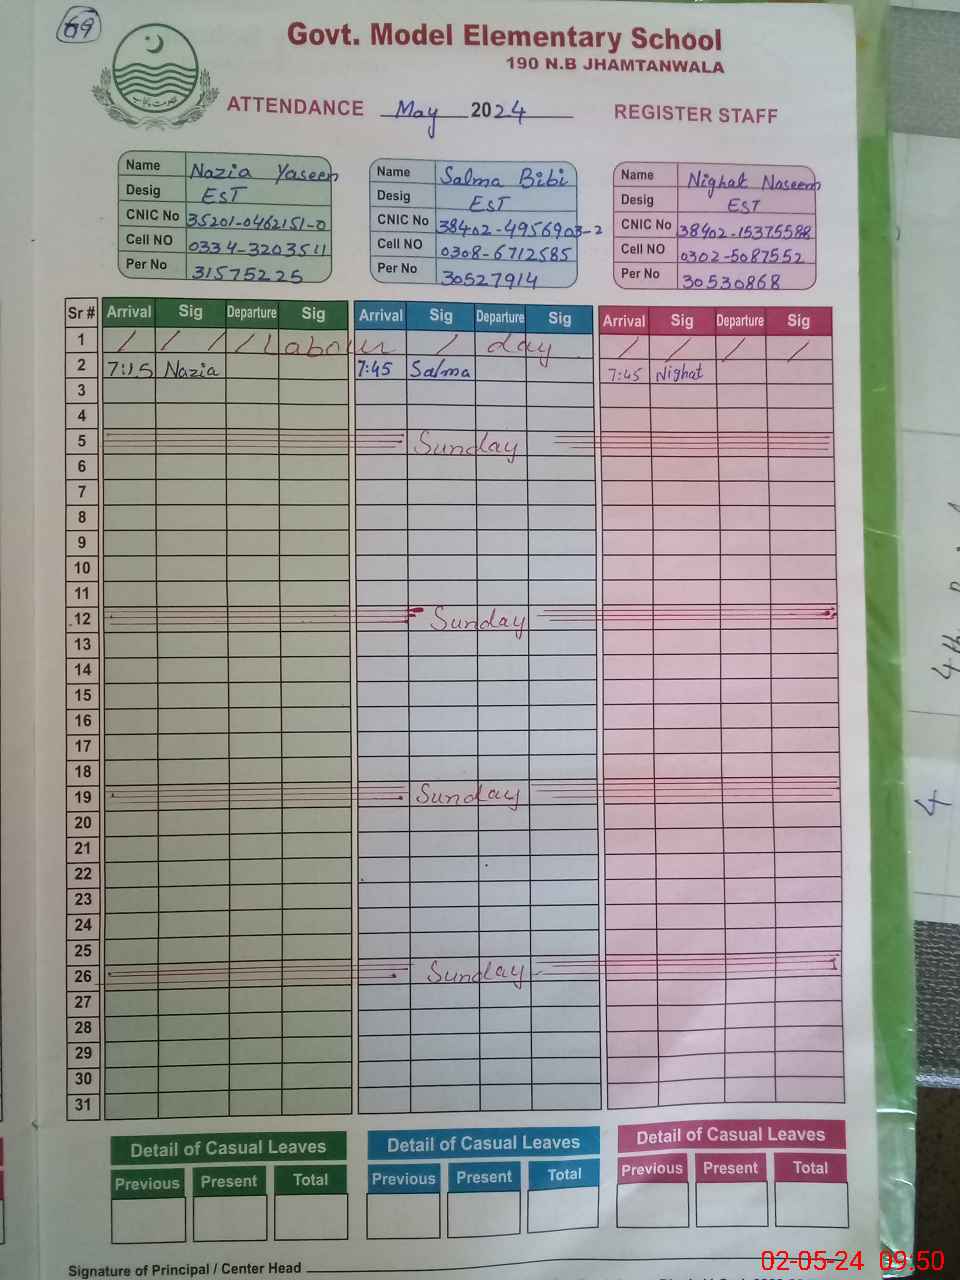 69
Govt. Model Elementary School
190 N.B JHAMTANWALA
ATTENDANCE May 2024 REGISTER STAFF
Name Nazia Yaseen
Desig EST
CNIC No 35201-0462151-0
Cell NO 0334-3203511
Per No 31575225
Name Salma Bibi
Desig EST
CNIC No 38402-4956903-2
Cell NO 0308-6712585
Per No 30527914
Name Nighat Naseem
Desig EST
CNIC No 38402-15375588
Cell NO 0302-5087552
Per No 30530868
Sr # Arrival Sig Departure Sig Arrival Sig Departure Sig Arrival Sig Departure Sig
1 / / / / Labour / day / / / /
2 7:15 Nazia 7:45 Salma 7:45 Nighat
3
4
5 Sunday
6
7
8
9
10
11
12 Sunday
13
14
15
16
17
18
19 Sunday
20
21
22
23
24
25
26 Sunday
27
28
29
30
31
Detail of Casual Leaves Detail of Casual Leaves Detail of Casual Leaves
Previous Present Total Previous Present Total Previous Present Total
Signature of Principal / Center Head
4th
4
02-05-24 09:50